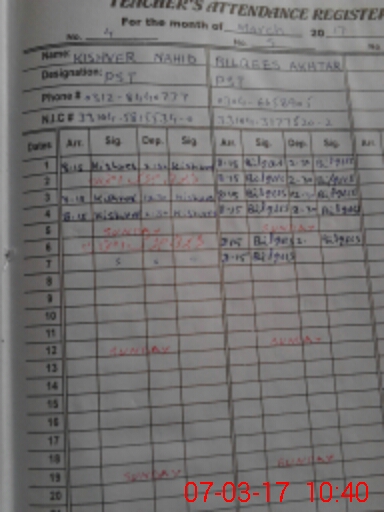 TEACHER'S ATTENDANCE REGISTER
For the month of March 2017
No. 4 No. 5
Name: KISHVER NAHID BILQEES AKHTAR
Designation: PST PST
Phone #
N.I.C #
Dates Arr. Sig. Dep. Sig. Arr. Sig. Dep. Sig.
1 8-15 Kishver 2-30 Kishver 8-15 Bilqees 2-30 Bilqees
2 8-15 Bilqees 2-30 Bilqees
3 8-15 Kishver 2-30 Kishver 8-15 Bilqees 2-30 Bilqees
4 8-15 Kishver 2-30 Kishver 8-15 Bilqees 2-30 Bilqees
5 SUNDAY SUNDAY
6 8-15 Bilqees Bilqees
7 8-15 Bilqees
8
9
10
11
12 SUNDAY SUNDAY
13
14
15
16
17
18
19 SUNDAY SUNDAY
20
07-03-17 10:40